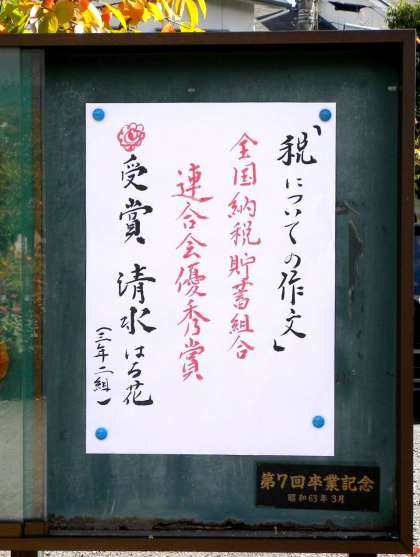 「税についての作文」
全国納税貯蓄組合
連合会優秀賞
受賞 清水 はろ花
(三年二組)
第7回卒業記念
昭和63年3月